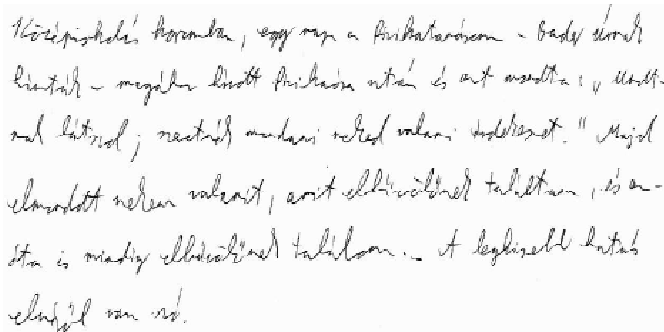 Középiskolás koromban, egy nap a fizikatanárom - Bader úrnak
hívták - magához hívott fizikaóra után és azt mondta: „Unott-
nak látszol; szeretnék mondani neked valami érdekeset." Majd
elmondott nekem valamit, amit elbűvölőnek találtam, és az-
óta is mindig elbűvölőnek találom. - A legkisebb hatás
elvéről van szó.